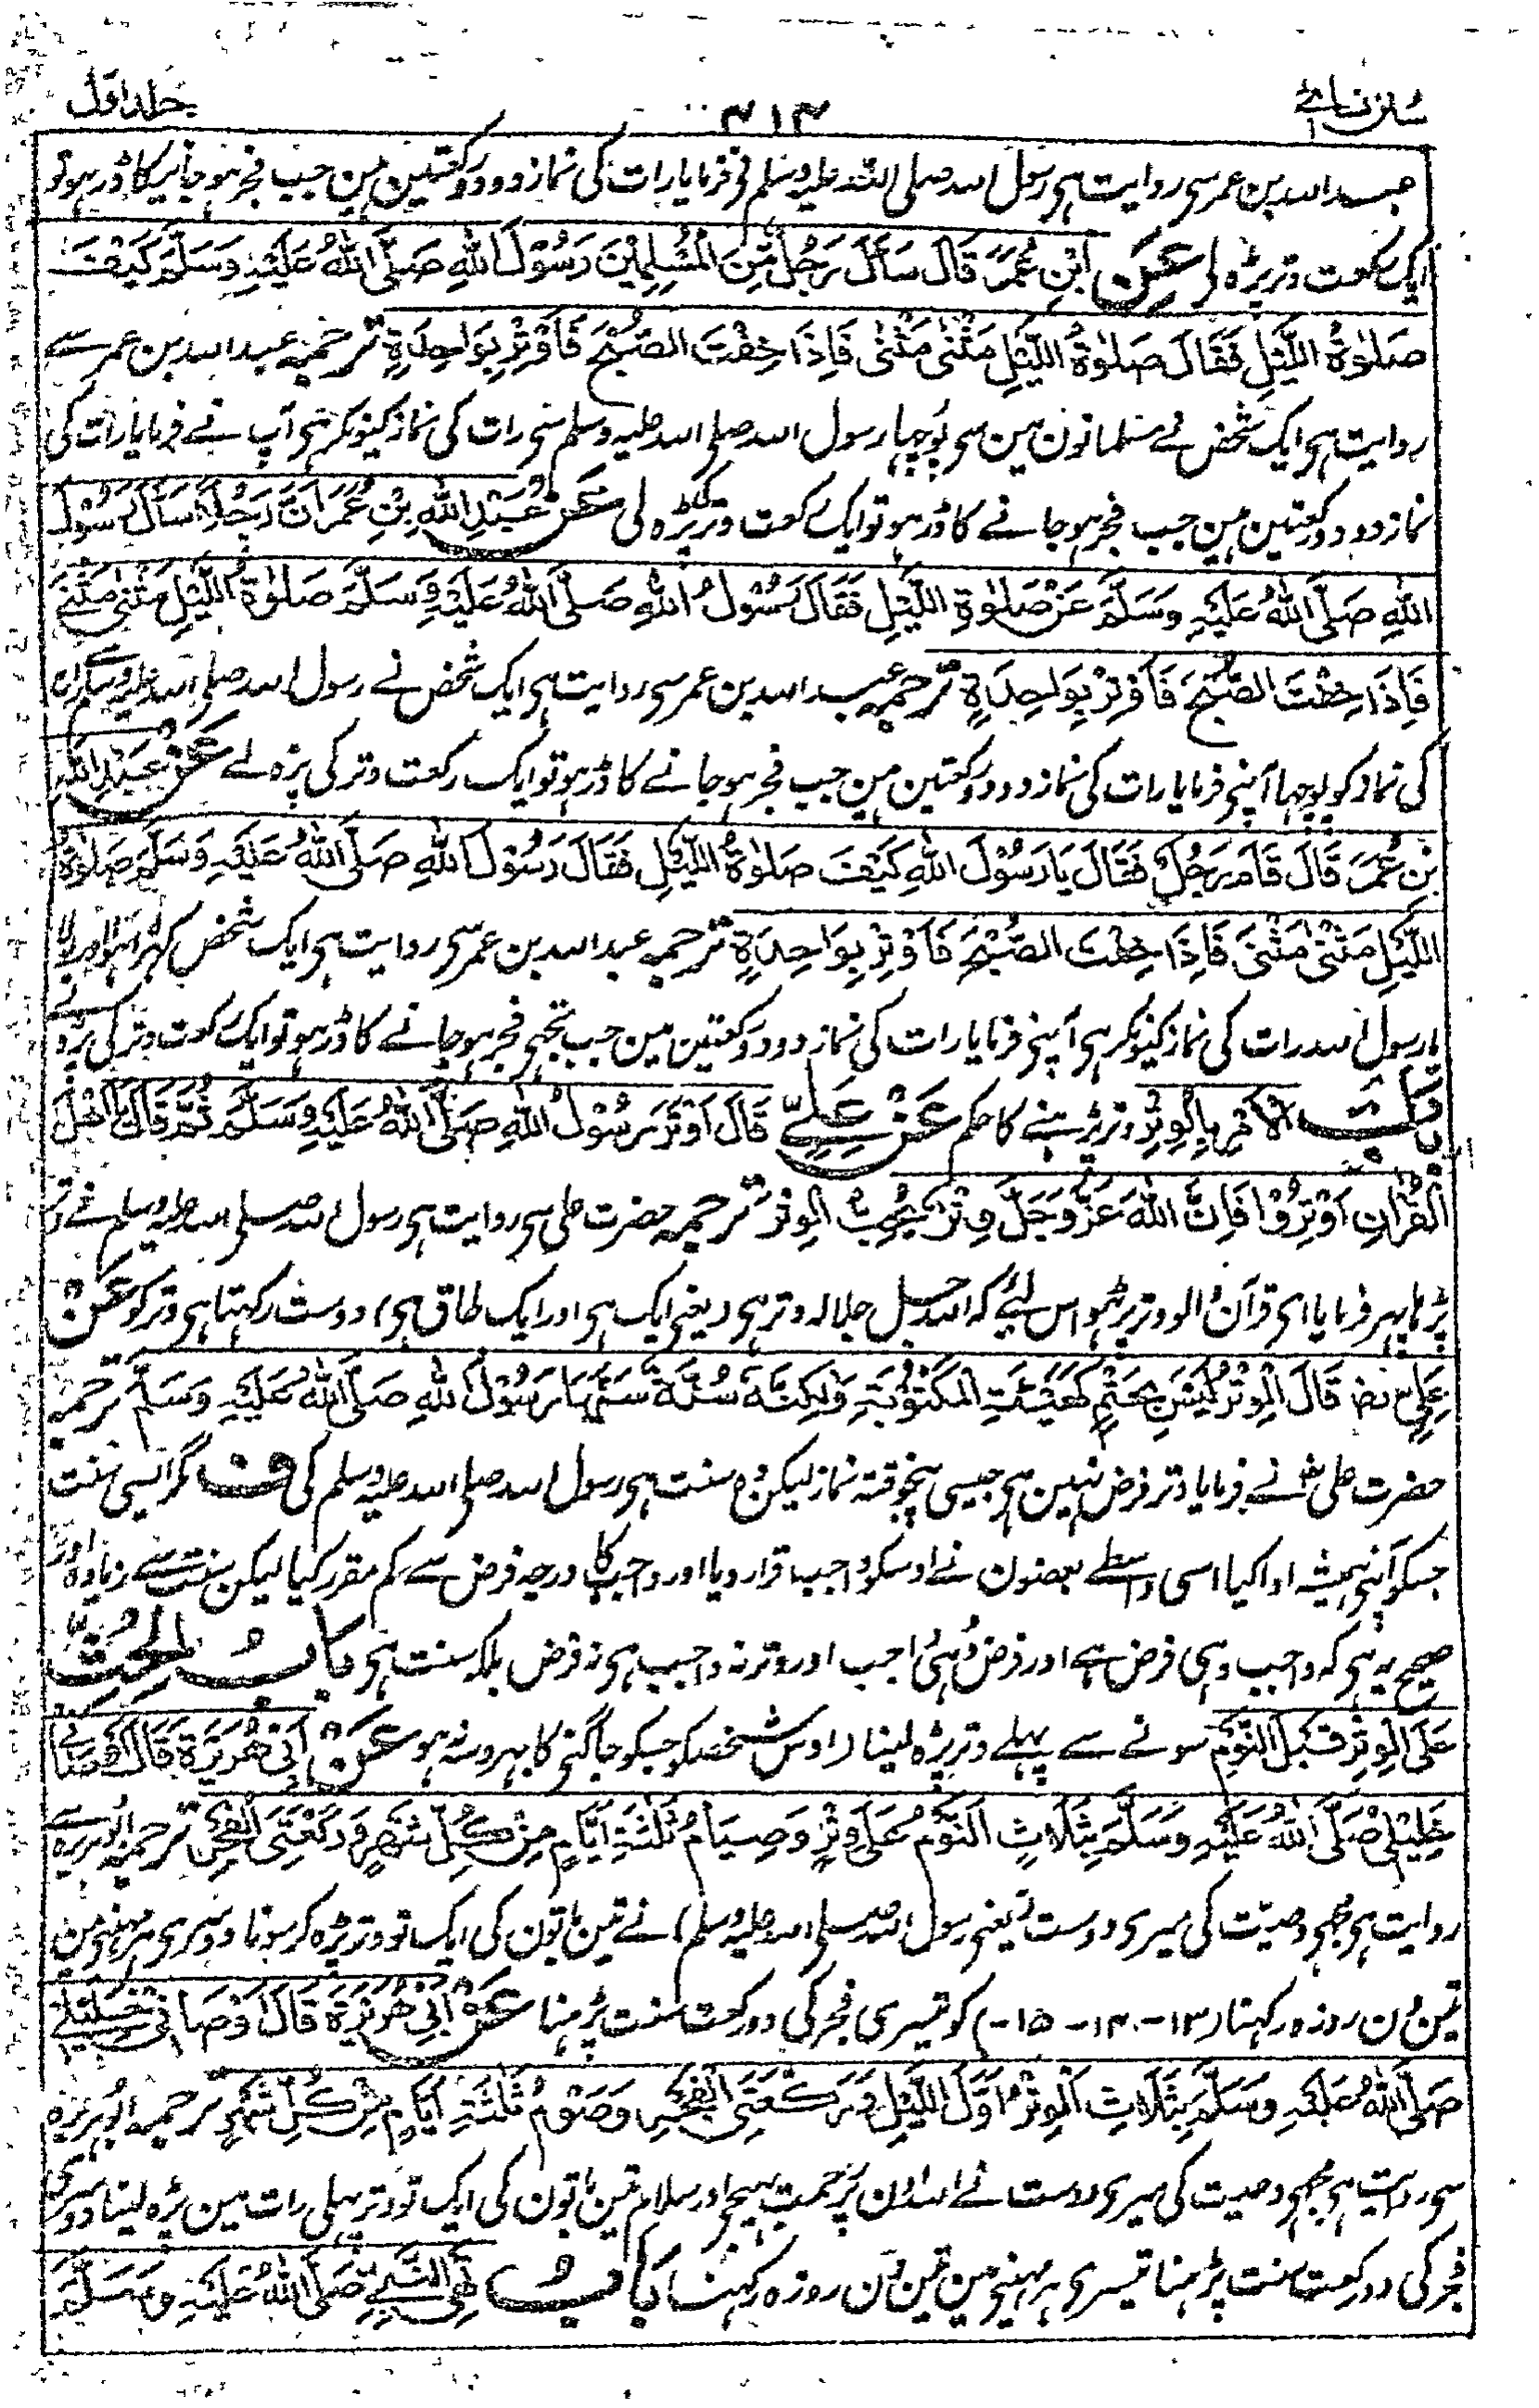 سنن نسائی ۴۱۴ جلد اول
عبد اللہ بن عمر سی روایت ہی رسول اللہ صلی اللہ علیہ وسلم نی فرمایا رات کی نماز دو دو رکعتین ہین جب فجر ہو جانیکا ڈر ہو تو
ایک رکعت وتر پڑہ لی عَنِ ابْنِ عُمَرَ قَالَ سَأَلَ رَجُلٌ مِّنَ الْمُسْلِمِيْنَ رَسُوْلَ اللّٰهِ صَلَّى اللّٰهُ عَلَيْهِ وَسَلَّمَ كَيْفَ
صَلٰوةُ اللَّيْلِ فَقَالَ صَلٰوةُ اللَّيْلِ مَثْنٰى مَثْنٰى فَاِذَا خِفْتَ الصُّبْحَ فَاَوْتِرْ بِوَاحِدَةٍ ترجمہ عبد اللہ بن عمر سے
روایت ہی ایک شخص نے مسلمانون مین سی پوچہا رسول اللہ صلی اللہ علیہ وسلم سی رات کی نماز کیونکر ہی آپ نے فرمایا رات کی
نماز دو دو رکعتین ہین جب فجر ہو جانے کا ڈر ہو تو ایک رکعت وتر پڑہ لی عَنْ عَبْدِ اللّٰهِ بْنِ عُمَرَ اَنَّ رَجُلًا سَاَلَ رَسُوْلَ
اللّٰهِ صَلَّى اللّٰهُ عَلَيْهِ وَسَلَّمَ عَنْ صَلٰوةِ اللَّيْلِ فَقَالَ رَسُوْلُ اللّٰهِ صَلَّى اللّٰهُ عَلَيْهِ وَسَلَّمَ صَلٰوةُ اللَّيْلِ مَثْنٰى مَثْنٰى
فَاِذَا خِفْتَ الصُّبْحَ فَاَوْتِرْ بِوَاحِدَةٍ ترجمہ عبد اللہ بن عمر سی روایت ہی ایک شخص نے رسول اللہ صلی اللہ علیہ وسلم سے رات
کی نماز کو پوچہا آپنی فرمایا رات کی نماز دو دو رکعتین ہین جب فجر ہو جانے کا ڈر ہو تو ایک رکعت وتر کی پڑہ لے عَنْ عَبْدِ اللّٰهِ
بْنِ عُمَرَ قَالَ قَامَ رَجُلٌ فَقَالَ يَا رَسُوْلَ اللّٰهِ كَيْفَ صَلٰوةُ اللَّيْلِ فَقَالَ رَسُوْلُ اللّٰهِ صَلَّى اللّٰهُ عَلَيْهِ وَسَلَّمَ صَلٰوةُ
اللَّيْلِ مَثْنٰى مَثْنٰى فَاِذَا خِفْتَ الصُّبْحَ فَاَوْتِرْ بِوَاحِدَةٍ ترجمہ عبد اللہ بن عمر سی روایت ہی ایک شخص کہڑا ہوا اور بولا
یا رسول اللہ رات کی نماز کیونکر ہی آپنی فرمایا رات کی نماز دو دو رکعتین ہین جب تجہی فجر ہو جانے کا ڈر ہو تو ایک رکعت وتر کی پڑہ لے
بَابُ الْاَمْرِ بِالْوِتْرِ وتر پڑہنے کا حکم عَنْ عَلِيٍّ قَالَ اَوْتَرَ رَسُوْلُ اللّٰهِ صَلَّى اللّٰهُ عَلَيْهِ وَسَلَّمَ ثُمَّ قَالَ يَا اَهْلَ
الْقُرْاٰنِ اَوْتِرُوْا فَاِنَّ اللّٰهَ عَزَّ وَجَلَّ وِتْرٌ يُّحِبُّ الْوِتْرَ ترجمہ حضرت علی سی روایت ہی رسول اللہ صلی اللہ علیہ وسلم نے وتر
پڑہا پہر فرمایا ای قرآن والو وتر پڑہو اس لیے کہ اللہ جل جلالہ وتر ہی (یعنی ایک ہی اور ایک طاق ہی) دوست رکہتا ہی وتر کو عَنْ
عَلِيٍّ رض قَالَ الْوِتْرُ لَيْسَ بِحَتْمٍ كَهَيْئَةِ الْمَكْتُوْبَةِ وَلٰكِنَّهٗ سُنَّةٌ سَنَّهَا رَسُوْلُ اللّٰهِ صَلَّى اللّٰهُ عَلَيْهِ وَسَلَّمَ ترجمہ
حضرت علی رض نے فرمایا وتر فرض نہین ہی جیسی پنجوقتہ نماز لیکن وہ سنت ہی رسول اللہ صلی اللہ علیہ وسلم کی ف مگر ایسی سنت
جسکو آپنی ہمیشہ ادا کیا اسی واسطے بعضون نے اوسکو واجب قرار دیا اور واجب کا درجہ فرض سے کم مقرر کیا لیکن سنت سے زیادہ اور
صحیح یہ ہی کہ واجب وہی فرض ہے اور فرض وہی واجب اور وتر نہ واجب ہی نہ فرض بلکہ سنت ہی بَابُ الْحَثِّ
عَلَى الْوِتْرِ قَبْلَ النَّوْمِ سونے سے پہلے وتر پڑہ لینا (اوس شخص کو جسکو جاگنی کا بہروسہ نہ ہو عَنْ اَبِيْ هُرَيْرَةَ قَالَ اَوْصَانِيْ
خَلِيْلِيْ صَلَّى اللّٰهُ عَلَيْهِ وَسَلَّمَ بِثَلَاثٍ النَّوْمُ عَلٰى وِتْرٍ وَصِيَامُ ثَلٰثَةِ اَيَّامٍ مِنْ كُلِّ شَهْرٍ وَرَكْعَتَيِ الْفَجْرِ ترجمہ ابو ہریرہ سے
روایت ہی مجہی وصیت کی میری دوست (یعنی رسول اللہ صلی اللہ علیہ وسلم) نے تین باتون کی ایک تو وتر پڑہ کر سونا دوسری ہر مہینی مین
تین دن روزہ رکہنا (۱۳-۱۴-۱۵-) کو تیسری فجر کی دو رکعت سنت پڑہنا عَنْ اَبِيْ هُرَيْرَةَ قَالَ اَوْصَانِيْ خَلِيْلِيْ
صَلَّى اللّٰهُ عَلَيْهِ وَسَلَّمَ بِثَلَاثٍ الْوِتْرُ اَوَّلَ اللَّيْلِ وَرَكْعَتَيِ الْفَجْرِ وَصَوْمُ ثَلٰثَةِ اَيَّامٍ مِنْ كُلِّ شَهْرٍ ترجمہ ابو ہریرہ
سی روایت ہی مجہی وصیت کی میری دوست نے اللہ اون پر رحمت بہیجی اور سلام تین باتون کی ایک تو وتر پہلی رات مین پڑہ لینا دوسری
فجر کی دو رکعت سنت پڑہنا تیسری ہر مہینی مین تین دن روزہ رکہنا بَابُ نَهْيِ النَّبِيِّ صَلَّى اللّٰهُ عَلَيْهِ وَسَلَّمَ